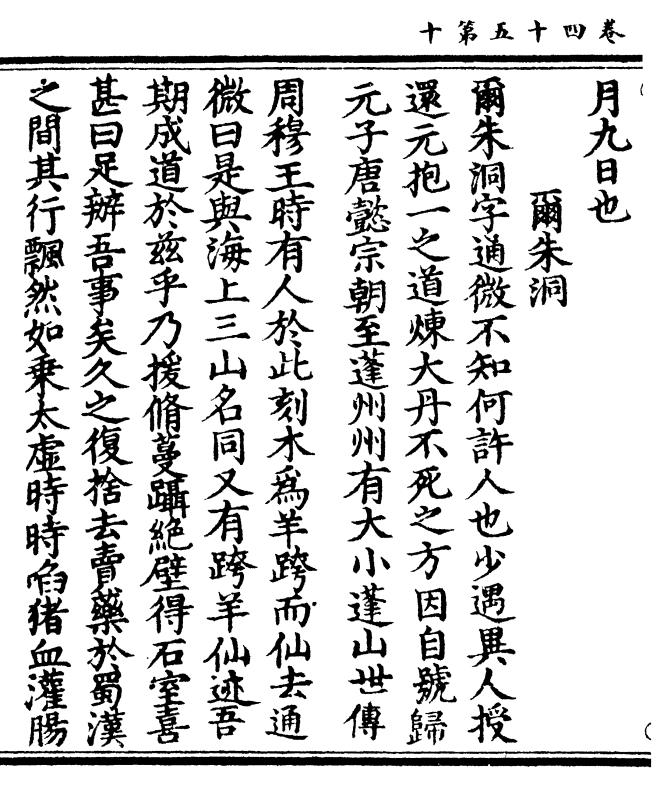 卷四十五第十
月九日也
爾朱洞
爾朱洞字通微不知何許人也少遇異人授
還元抱一之道煉大丹不死之方因自號歸
元子唐懿宗朝至蓬州州有大小蓬山世傳
周穆王時有人於此刻木爲羊跨而仙去通
微曰是與海上三山名同又有跨羊仙迹吾
期成道於茲乎乃援脩蔓躡絕壁得石室喜
甚曰足辦吾事矣久之復捨去賣藥於蜀漢
之間其行飄然如乗太虛時時啗猪血灌腸